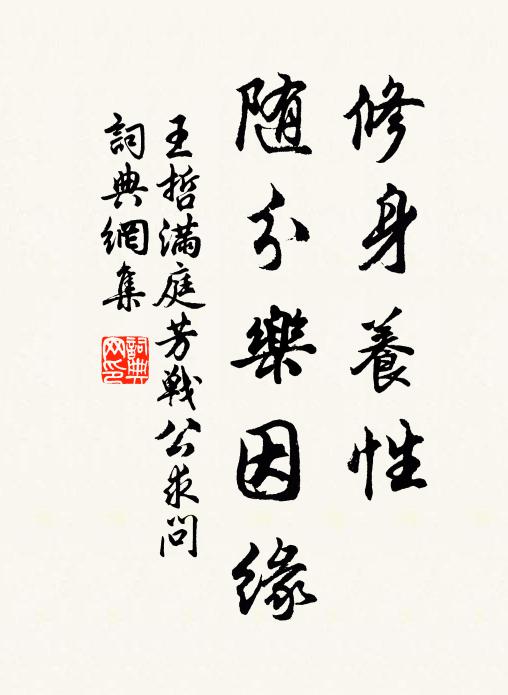 修身養性
随分樂因緣
王哲滿庭芳戰公求問
詞典網集
詞典網印